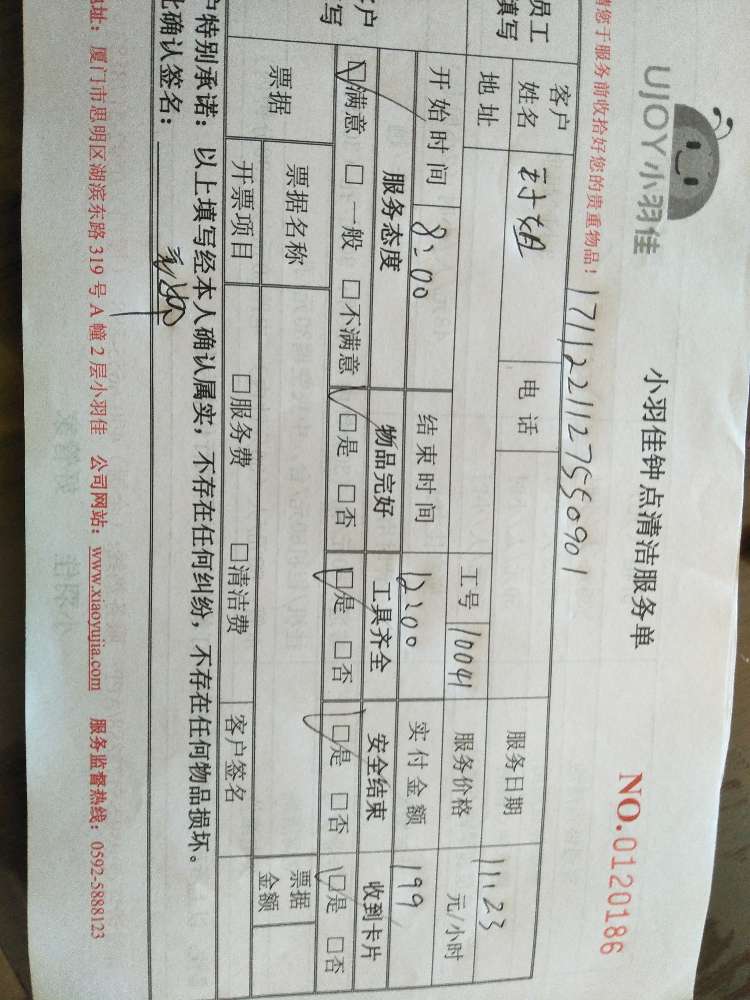 UJOY小羽佳
小羽佳钟点清洁服务单
NO.0120186
请您于服务前收拾好您的贵重物品！
171122112755509​01
员工
填写
客户
姓名
电话
服务日期 11.23
地址
工号 10041
服务价格 元/小时
开始时间 8:00 结束时间 12:00 实付金额 199
客户
填写
服务态度 物品完好 工具齐全 安全结束 收到卡片
☑满意 □一般 □不满意 ☑是 □否 ☑是 □否 ☑是 □否 ☑是 □否
票据
票据名称
票据
金额
开票项目 □服务费 □清洁费 客户签名
户特别承诺：以上填写经本人确认属实，不存在任何纠纷，不存在任何物品损坏。
此确认签名：
地址：厦门市思明区湖滨东路 319 号 A 幢 2 层小羽佳 公司网站：www.xiaoyujia.com 服务监督热线：0592-5888123